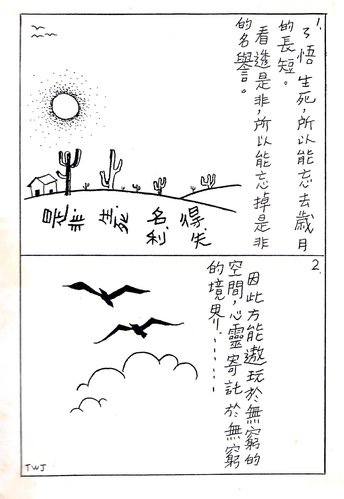 1.
了悟生死,所以能忘去歲月
的長短。
看透是非,所以能忘掉是非
的名譽。
是非 生死 名利 得失
2.
因此方能遨玩於無窮的
空間,心靈寄託於無窮
的境界!!........
TWJ